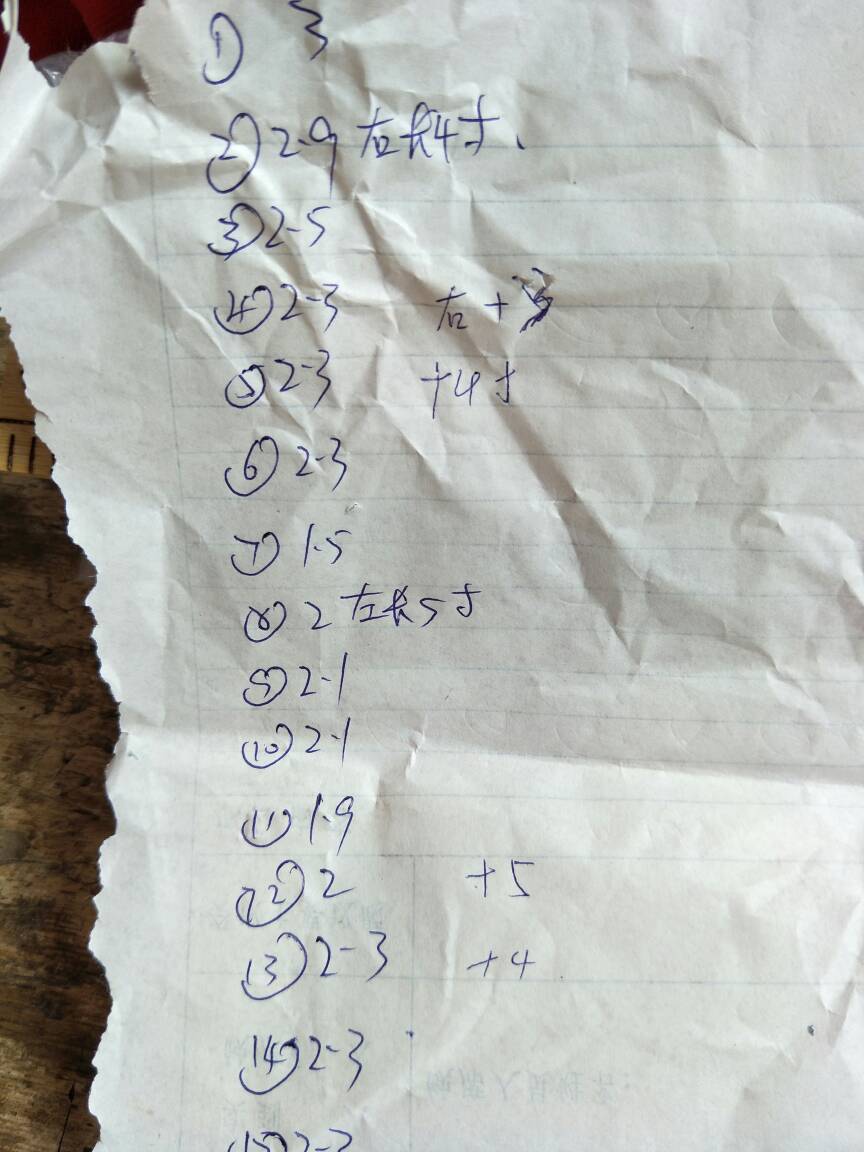 ① 3
② 2-9 右长4寸、
③ 2-5
④ 2-3 右+
⑤ 2-3 +4寸
⑥ 2-3
⑦ 1.5
⑧ 2 左长5寸
⑨ 2-1
⑩ 2-1
⑪ 1.9
⑫ 2 +5
⑬ 2-3 +4
⑭ 2-3
⑮